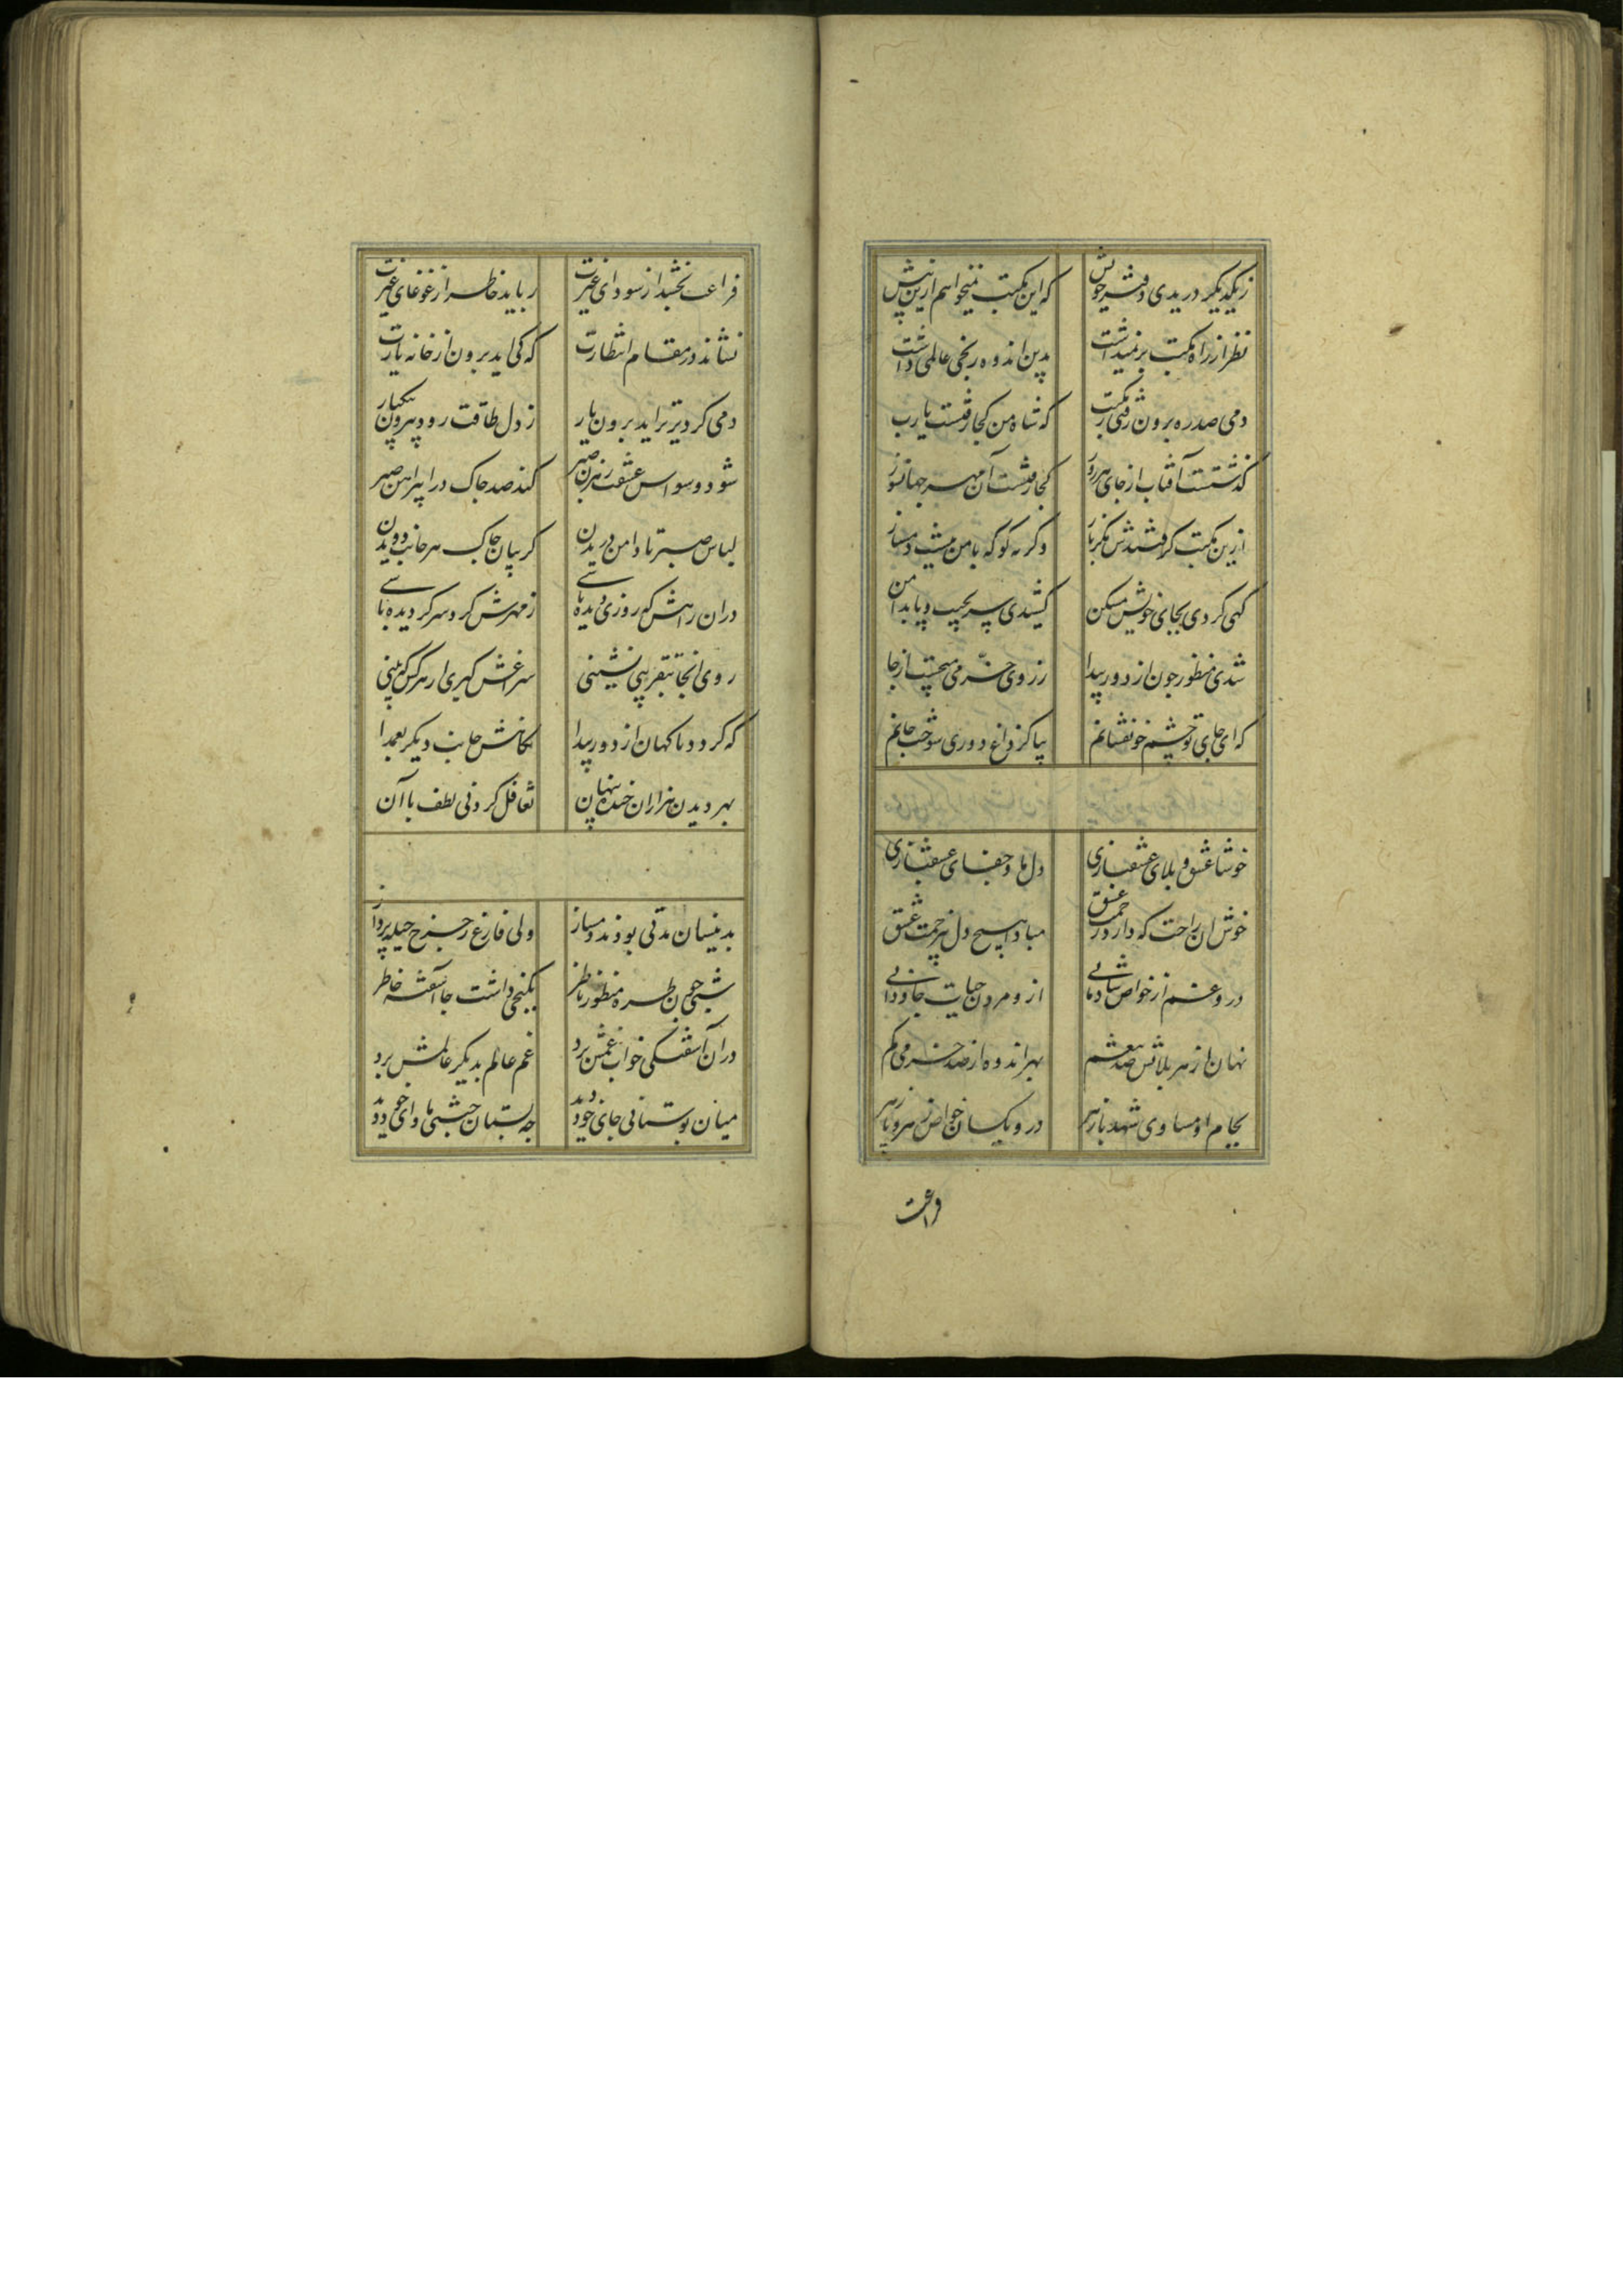 ز یکدیگر دریدی دفتر خویش که این مکتب نمیخواهم ازین پیش
نظر از راه مکتب بر نمیداشت بدین اندوه رنجی عالمی داشت
دمی صد ره برون رفتی ز مکتب که شاه من کجا رفتست یارب
گذشتست آفتاب از جای هر روز کجا رفتست آن مهر جهانسوز
ازین مکتب گرفتندش مگر باز وگرنه کو که با من نیست دمساز
گهی کردی بجای خویش مسکن کشیدی سر بجیب و پا بدامن
شدی منظور چون از دور پیدا ز روی خرمی میجست از جا
که ای جای تو چشم خونفشانم بیا کز داغ دوری سوخت جانم
خوشا عشق و بلای عشقبازی دل ما و جفای عشقبازی
خوش آن راحت که دارد زحمت عشق مبادا هیچ دل بی زحمت عشق
درو غم از خواص شادمانی ازو مردن حیات جاودانی
نهان از هر بلائش صد تنعم بهر اندوه از صد خرمی گم
بجام او مساوی شهد با زهر درو یکسان خواص زهر و پازهر
فراغت
فراغت بخشد از سودای غیرت رباید خاطر از غوغای غیرت
نشاند در مقام انتظارت که کی آید برون از خانه یارت
دمی گر دیرتر آید برون یار ز دل طاقت رود بیرون بیکبار
شود وسواس عشقت رهزن صبر کند صد چاک در پیراهن صبر
لباس صبر تا دامن دریدن گریبان چاک هر جانب دویدن
در آن راهش که روزی دیده باشی ز مهرش گرد سر گردیده باشی
روی آنجا بتقریبی نشینی سراغش گیری از هر کس که بینی
که گردد ناگهان از دور پیدا نگاهش جانب دیگر بعمدا
بهر دیدن هزاران خنده پنهان تغافل کردنی لطف با آن
بدینسان مدتی بودند دمساز ولی فارغ ز چرخ حیله پرداز
شبی چون طره منظور ناظر بکنجی داشت جا آشفته خاطر
در آن آشفتگی خواب غمش برد غم عالم بدیگر عالمش برد
میان بوستانی جای خود دید چه بستان جنتی ماوای خود دید